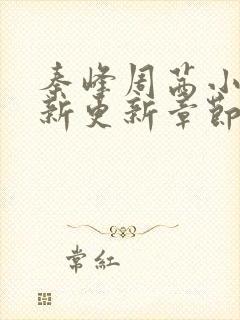 秦峰周茜小
新更新章节
常红